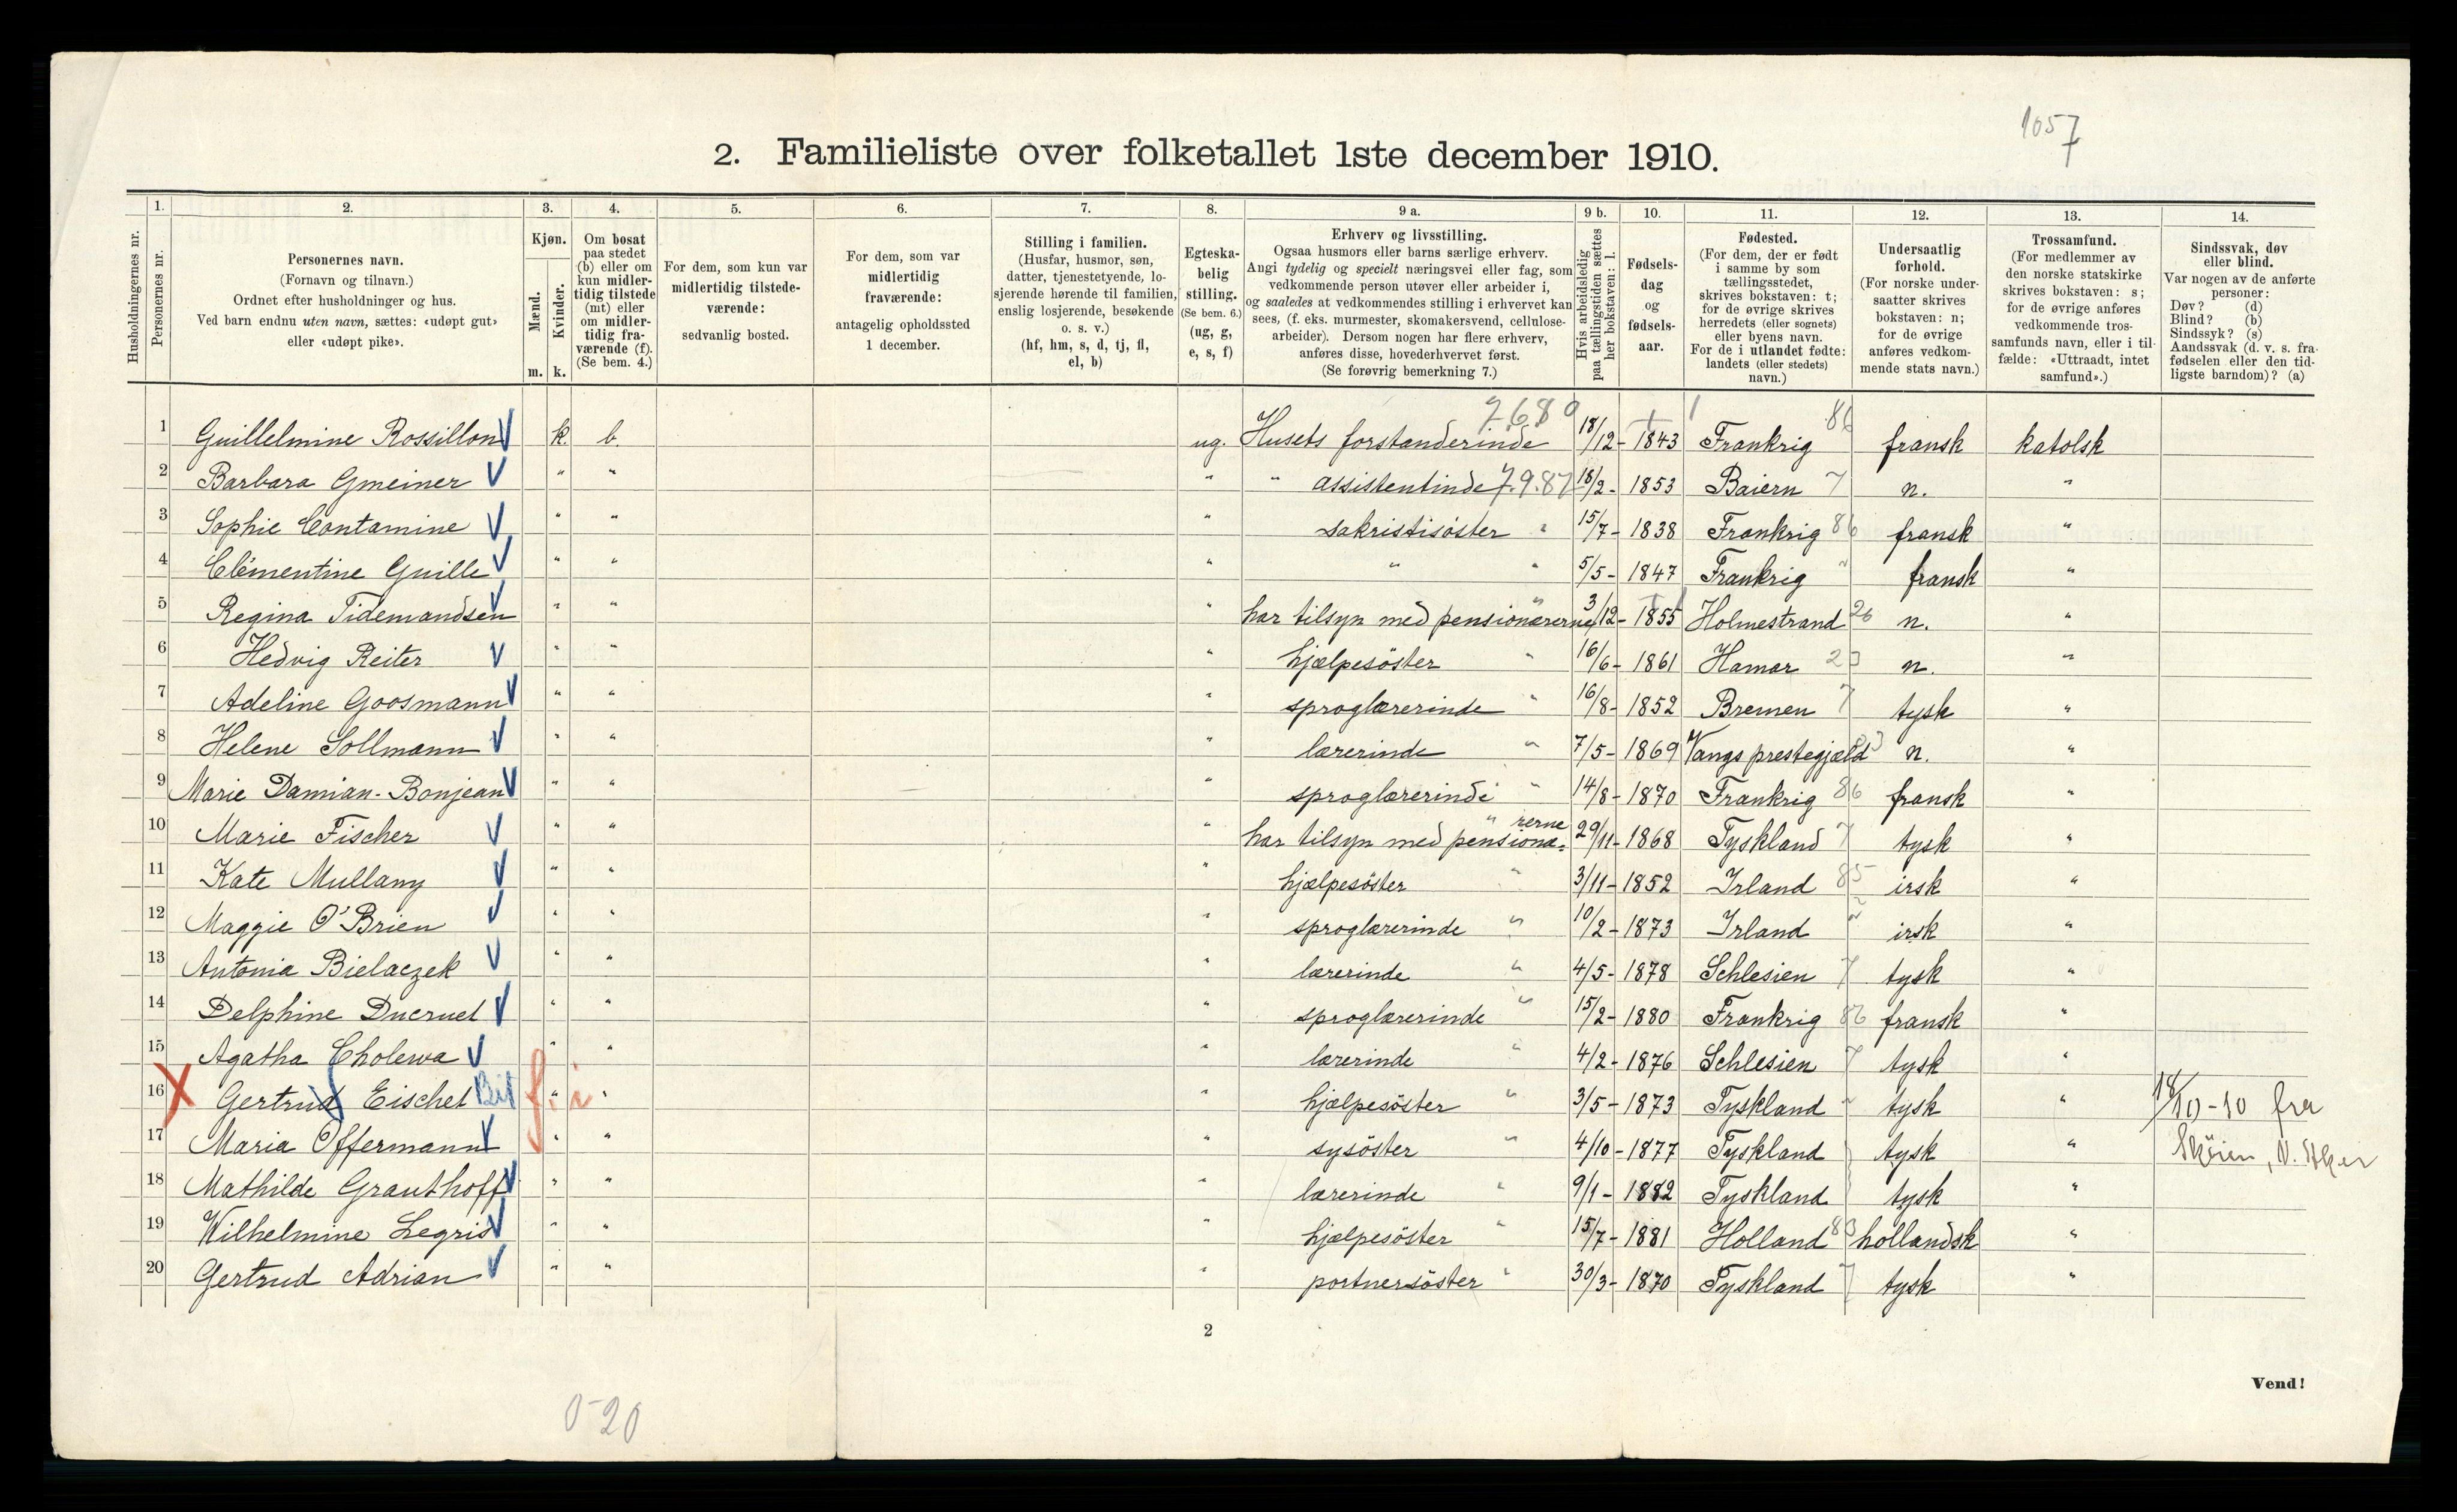 1057
2. Familieliste over folketallet 1ste december 1910.
Husholdningernes nr.
1. Personernes nr.
2. Personernes navn. (Fornavn og tilnavn.) Ordnet efter husholdninger og hus. Ved barn endnu uten navn, sættes: «udøpt gut» eller «udøpt pike».
3. Kjøn. Mænd. m. Kvinder. k.
4. Om bosat paa stedet (b) eller om kun midlertidig tilstede (mt) eller om midlertidig fraværende (f). (Se bem. 4.)
5. For dem, som kun var midlertidig tilstedeværende: sedvanlig bosted.
6. For dem, som var midlertidig fraværende: antagelig opholdssted 1 december.
7. Stilling i familien. (Husfar, husmor, søn, datter, tjenestetyende, losjerende hørende til familien, enslig losjerende, besøkende o. s. v.) (hf, hm, s, d, tj, fl, el, b)
8. Egteskabelig stilling. (Se bem. 6.) (ug, g, e, s, f)
9 a. Erhverv og livsstilling. Ogsaa husmors eller barns særlige erhverv. Angi tydelig og specielt næringsvei eller fag, som vedkommende person utøver eller arbeider i, og saaledes at vedkommendes stilling i erhvervet kan sees, (f. eks. murmester, skomakersvend, cellulosearbeider). Dersom nogen har flere erhverv, anføres disse, hovederhvervet først. (Se forøvrig bemerkning 7.)
9 b. Hvis arbeidsledig paa tællingstiden sættes her bokstaven: l.
10. Fødselsdag og fødselsaar.
11. Fødested. (For dem, der er født i samme by som tællingsstedet, skrives bokstaven: t; for de øvrige skrives herredets (eller sognets) eller byens navn. For de i utlandet fødte: landets (eller stedets) navn.)
12. Undersaatlig forhold. (For norske undersaatter skrives bokstaven: n; for de øvrige anføres vedkommende stats navn.)
13. Trossamfund. (For medlemmer av den norske statskirke skrives bokstaven: s; for de øvrige anføres vedkommende trossamfunds navn, eller i tilfælde: «Uttraadt, intet samfund».)
14. Sindssvak, døv eller blind. Var nogen av de anførte personer: Døv? (d) Blind? (b) Sindssyk? (s) Aandssvak (d. v. s. fra fødselen eller den tidligste barndom)? (a)
1 Guillelmine Rossillon k. b. ug. Husets forstanderinde 18/12 - 1843 Frankrig 86 fransk katolsk
2 Barbara Gmeiner " " " " assistentinde 7.9.87 18/2 - 1853 Baiern 7 n. "
3 Sophie Contamine " " " sakristisöster " 15/7 - 1838 Frankrig 86 fransk "
4 Clèmentine Guille " " " " " 5/5 - 1847 Frankrig " fransk "
5 Regina Tidemandsen " " " har tilsyn med pensionærerne " 3/12 - 1855 Holmestrand 26 n. "
6 Hedvig Reiter " " " hjælpesöster " 16/6 - 1861 Hamar 23 n. "
7 Adeline Goosmann " " " sproglærerinde " 16/8 - 1852 Bremen 7 tysk "
8 Helene Sollmann " " " lærerinde " 7/5 - 1869 Vangs prestegjæld n. "
9 Marie Damian-Bonjean " " " sproglærerinde " 14/8 - 1870 Frankrig 86 fransk "
10 Marie Fischer " " " har tilsyn med pensionærerne " 29/11 - 1868 Tyskland 7 tysk "
11 Kate Mullany " " " hjælpesöster " 3/11 - 1852 Irland 85 irsk "
12 Maggie O'Brien " " " sproglærerinde " 10/2 - 1873 Irland " irsk "
13 Antonia Bielaczek " " " lærerinde " 4/5 - 1878 Schlesien 7 tysk "
14 Delphine Ducruet " " " sproglærerinde " 15/2 - 1880 Frankrig 86 fransk "
15 Agatha Cholewa " " " lærerinde " 4/2 - 1876 Schlesien 7 tysk "
16 Gertrud Eischet " " " hjælpesöster " 3/5 - 1873 Tyskland " tysk " 18/10-10 fra
17 Maria Offermann " " " sysöster " 4/10 - 1877 Tyskland tysk " Sköien, V. Aker
18 Mathilde Grauthoff " " " lærerinde " 9/1 - 1882 Tyskland tysk "
19 Wilhelmine Legris " " " hjælpesöster " 15/7 - 1881 Holland 83 hollandsk "
20 Gertrud Adrian " " " portnersöster " 30/3 - 1870 Tyskland 7 tysk "
2
Vend!
0-20